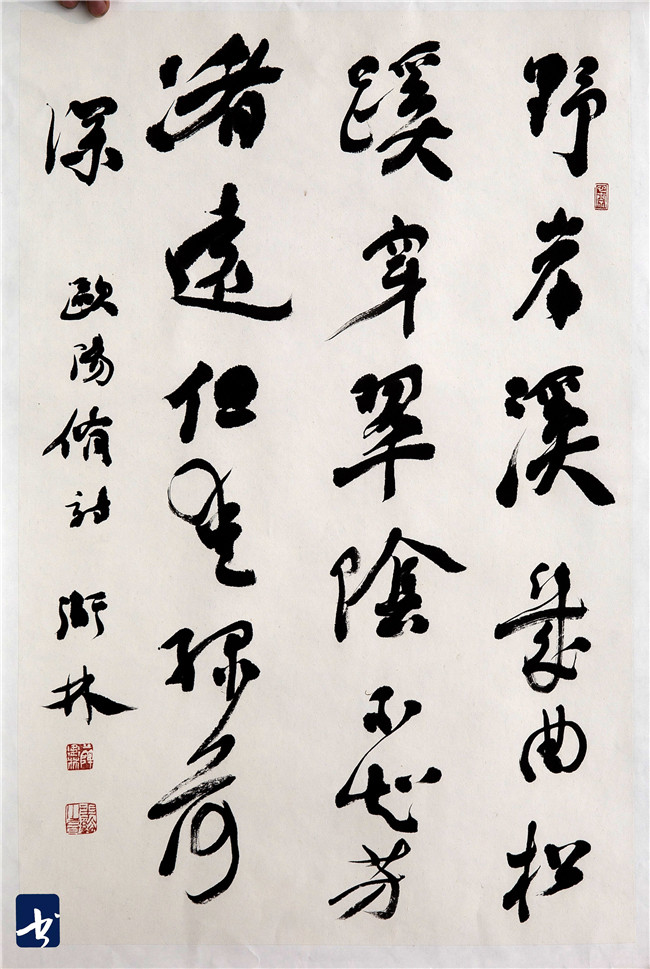 野岸溪幾曲松
蹊穿翠陰不知芳
渚遠但愛綠荷
深 歐陽脩詩 衛林
薛衛林
书